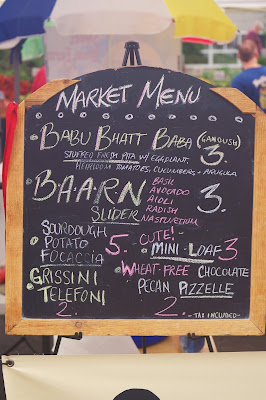 MARKET MENU
BABU BHATT BABA (GANOUSH) 3.
STUFFED FRESH PITA W/ EGGPLANT,
HEIRLOOM TOMATOES, CUCUMBERS + ARUGULA
B.A.A.R.N SLIDER
BASIL
AVOCADO
AIOLI
RADISH
NASTURTIUM
3.
SOURDOUGH
POTATO
FOCACCIA
5.
CUTE!
MINI-LOAF 3
WHEAT-FREE CHOCOLATE
PECAN PIZZELLE
2.
GRISSINI
TELEFONI
2.
-TAX INCLUDED-